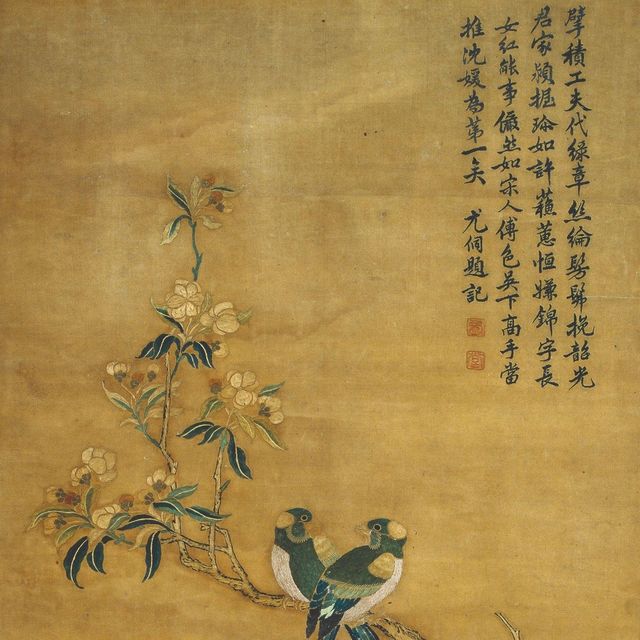 擘積工夫代綠章丝綸髣髴挽韶光
君家頻握珎如許蘓蕙恒嫌錦字長
女红能事儼然如宋人傅色吳下髙手當
推沈媛為第一矣 尤侗題記